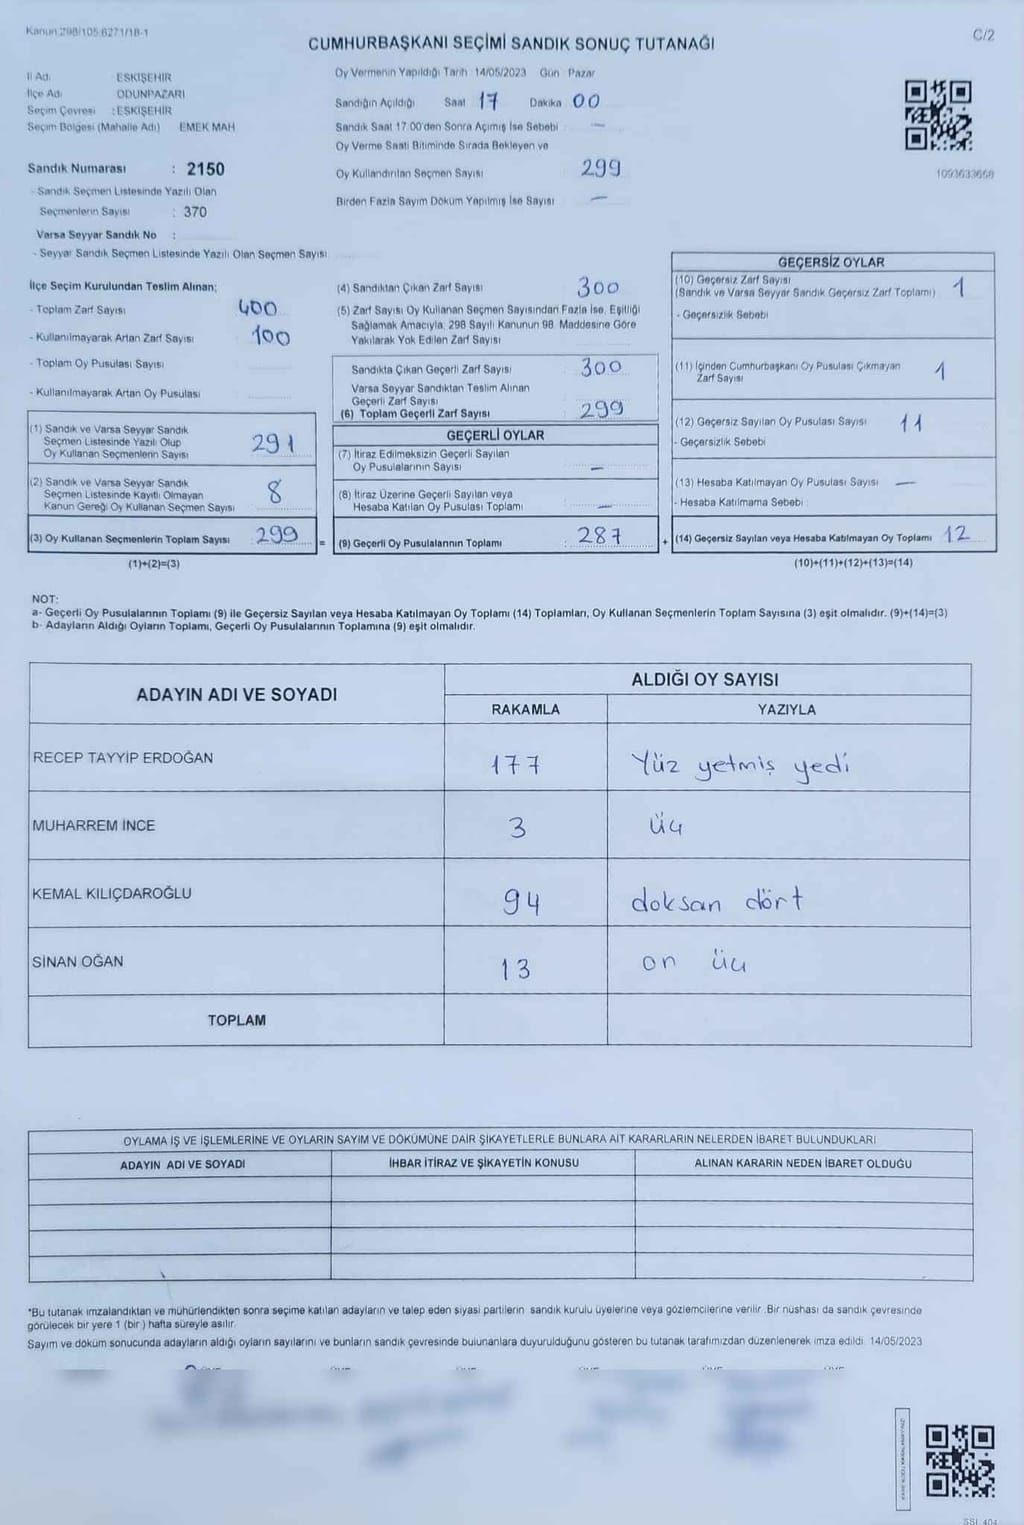 Kanun:298/105.6271/18-1
C/2
CUMHURBAŞKANI SEÇİMİ SANDIK SONUÇ TUTANAĞI
İl Adı ESKİŞEHİR
İlçe Adı ODUNPAZARI
Seçim Çevresi : ESKİŞEHİR
Seçim Bölgesi (Mahalle Adı) EMEK MAH
Sandık Numarası : 2150
- Sandık Seçmen Listesinde Yazılı Olan
Seçmenlerin Sayısı : 370
Varsa Seyyar Sandık No :
- Seyyar Sandık Seçmen Listesinde Yazılı Olan Seçmen Sayısı
Oy Vermenin Yapıldığı Tarih 14/05/2023 Gün Pazar
Sandığın Açıldığı Saat 17 Dakika 00
Sandık Saat 17.00'den Sonra Açımış İse Sebebi —
Oy Verme Saati Bitiminde Sırada Bekleyen ve
Oy Kullandırılan Seçmen Sayısı 299
Birden Fazla Sayım Döküm Yapılmış İse Sayısı —
1093633668
İlçe Seçim Kurulundan Teslim Alınan;
- Toplam Zarf Sayısı 400
- Kullanılmayarak Artan Zarf Sayısı 100
- Toplam Oy Pusulası Sayısı
- Kullanılmayarak Artan Oy Pusulası
(1) Sandık ve Varsa Seyyar Sandık
Seçmen Listesinde Yazılı Olup
Oy Kullanan Seçmenlerin Sayısı 291
(2) Sandık ve Varsa Seyyar Sandık
Seçmen Listesinde Kayıtlı Olmayan
Kanun Gereği Oy Kullanan Seçmen Sayısı 8
(3) Oy Kullanan Seçmenlerin Toplam Sayısı 299 =
(1)+(2)=(3)
(4) Sandıktan Çıkan Zarf Sayısı 300
(5) Zarf Sayısı Oy Kullanan Seçmen Sayısından Fazla İse, Eşitliği
Sağlamak Amacıyla, 298 Sayılı Kanunun 98. Maddesine Göre
Yakılarak Yok Edilen Zarf Sayısı
Sandıkta Çıkan Geçerli Zarf Sayısı 300
Varsa Seyyar Sandıktan Teslim Alınan
Geçerli Zarf Sayısı
(6) Toplam Geçerli Zarf Sayısı 299
GEÇERLİ OYLAR
(7) İtiraz Edilmeksizin Geçerli Sayılan
Oy Pusulalarının Sayısı —
(8) İtiraz Üzerine Geçerli Sayılan veya
Hesaba Katılan Oy Pusulası Toplamı —
(9) Geçerli Oy Pusulalarının Toplamı : 287 +
GEÇERSİZ OYLAR
(10) Geçersiz Zarf Sayısı
(Sandık ve Varsa Seyyar Sandık Geçersiz Zarf Toplamı) 1
- Geçersizlik Sebebi
(11) İçinden Cumhurbaşkanı Oy Pusulası Çıkmayan
Zarf Sayısı 1
(12) Geçersiz Sayılan Oy Pusulası Sayısı 11
- Geçersizlik Sebebi
(13) Hesaba Katılmayan Oy Pusulası Sayısı —
- Hesaba Katılmama Sebebi
(14) Geçersiz Sayılan veya Hesaba Katılmayan Oy Toplamı 12
(10)+(11)+(12)+(13)=(14)
NOT:
a- Geçerli Oy Pusulalarının Toplamı (9) ile Geçersiz Sayılan veya Hesaba Katılmayan Oy Toplamı (14) Toplamları, Oy Kullanan Seçmenlerin Toplam Sayısına (3) eşit olmalıdır. (9)+(14)=(3)
b- Adayların Aldığı Oyların Toplamı, Geçerli Oy Pusulalarının Toplamına (9) eşit olmalıdır.
ADAYIN ADI VE SOYADI ALDIĞI OY SAYISI
RAKAMLA YAZIYLA
RECEP TAYYİP ERDOĞAN 177 Yüz yetmiş yedi
MUHARREM İNCE 3 üç
KEMAL KILIÇDAROĞLU 94 doksan dört
SİNAN OĞAN 13 on üç
TOPLAM
OYLAMA İŞ VE İŞLEMLERİNE VE OYLARIN SAYIM VE DÖKÜMÜNE DAİR ŞİKAYETLERLE BUNLARA AİT KARARLARIN NELERDEN İBARET BULUNDUKLARI
ADAYIN ADI VE SOYADI İHBAR İTİRAZ VE ŞİKAYETİN KONUSU ALINAN KARARIN NEDEN İBARET OLDUĞU
*Bu tutanak imzalandıktan ve mühürlendikten sonra seçime katılan adayların ve talep eden siyasi partilerin sandık kurulu üyelerine veya gözlemcilerine verilir. Bir nüshası da sandık çevresinde
görülecek bir yere 1 (bir) hafta süreyle asılır.
Sayım ve döküm sonucunda adayların aldığı oyların sayılarını ve bunların sandık çevresinde bulunanlara duyurulduğunu gösteren bu tutanak tarafımızdan düzenlenerek imza edildi. 14/05/2023
SSL 404